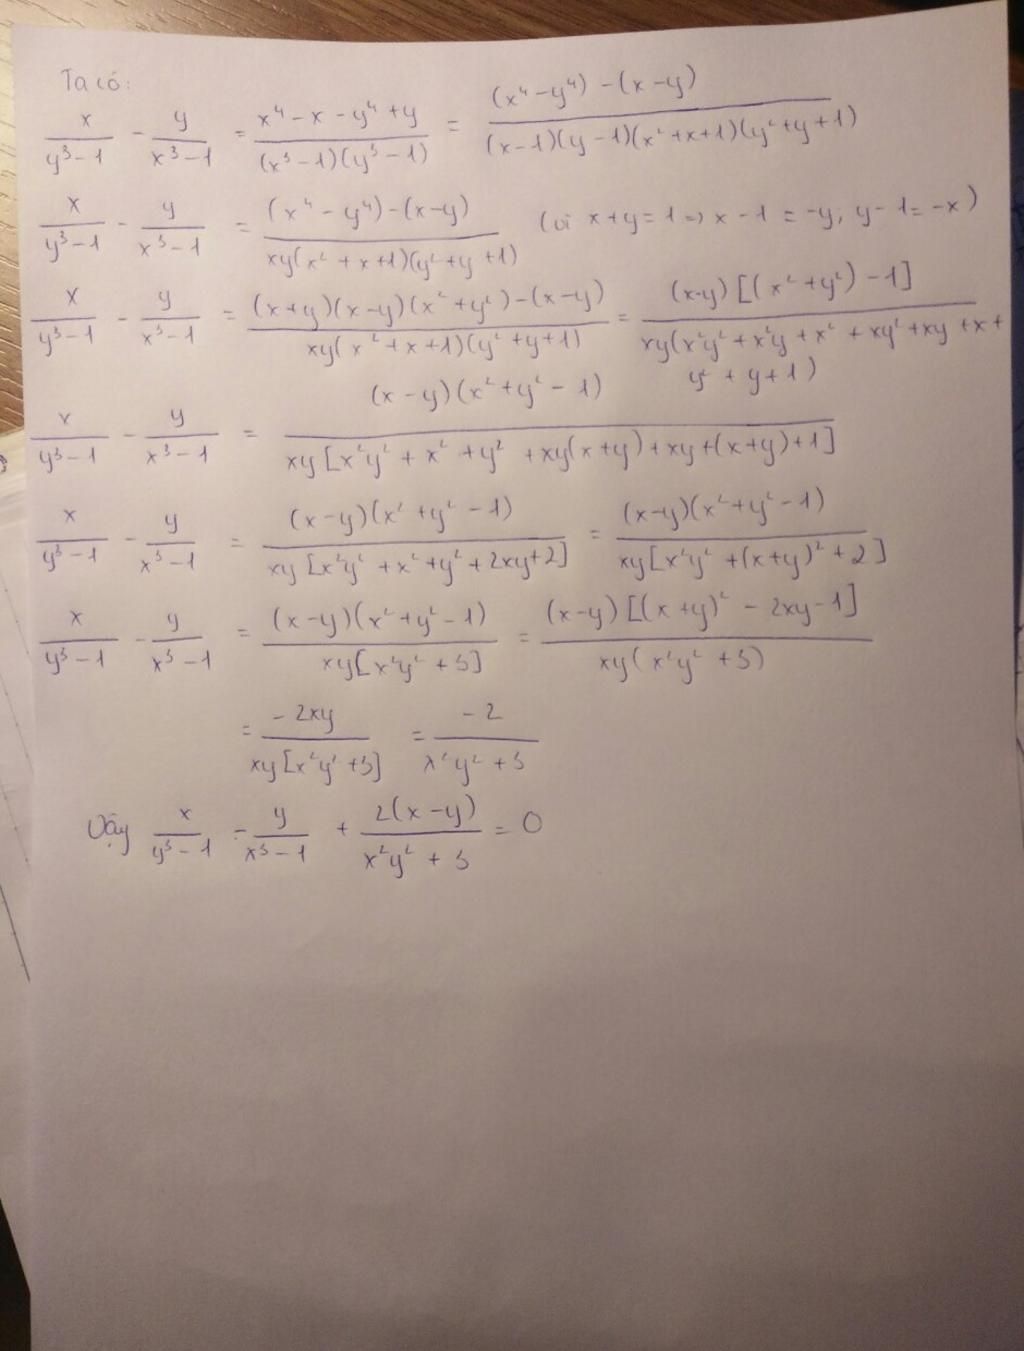 Ta có:
x/(y³-1) - y/(x³-1) = (x⁴ - x - y⁴ + y)/((x³-1)(y³-1)) = ((x⁴-y⁴) - (x-y))/((x-1)(y-1)(x²+x+1)(y²+y+1))
x/(y³-1) - y/(x³-1) = ((x⁴-y⁴)-(x-y))/(xy(x²+x+1)(y²+y+1)) (vì x+y=1 => x-1 = -y; y-1=-x)
x/(y³-1) - y/(x³-1) = ((x+y)(x-y)(x²+y²)-(x-y))/(xy(x²+x+1)(y²+y+1)) = ((x-y)[(x²+y²)-1])/(xy(x²y²+x²y+x²+xy²+xy+x+
y²+y+1))
x/(y³-1) - y/(x³-1) = ((x-y)(x²+y²-1))/(xy[x²y²+x²+y²+xy(x+y)+xy+(x+y)+1])
x/(y³-1) - y/(x³-1) = ((x-y)(x²+y²-1))/(xy[x²y²+x²+y²+2xy+2]) = ((x-y)(x²+y²-1))/(xy[x²y²+(x+y)²+2])
x/(y³-1) - y/(x³-1) = ((x-y)(x²+y²-1))/(xy[x²y²+3]) = ((x-y)[(x+y)²-2xy-1])/(xy(x²y²+3))
= (-2xy)/(xy[x²y²+3]) = (-2)/(x²y²+3)
Vậy x/(y³-1) - y/(x³-1) + (2(x-y))/(x²y²+3) = 0